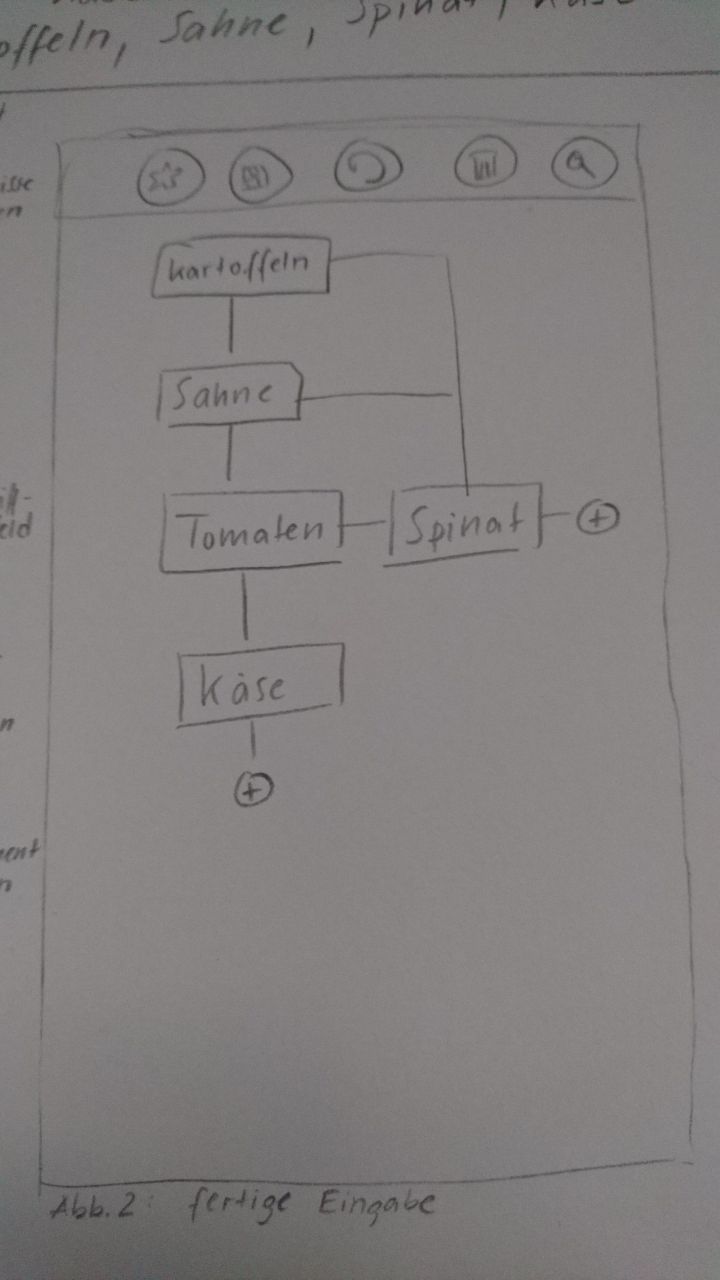 offeln, Sahne, Spinat,
Kartoffeln
Sahne
Tomaten
Spinat
Käse
Abb. 2: fertige Eingabe